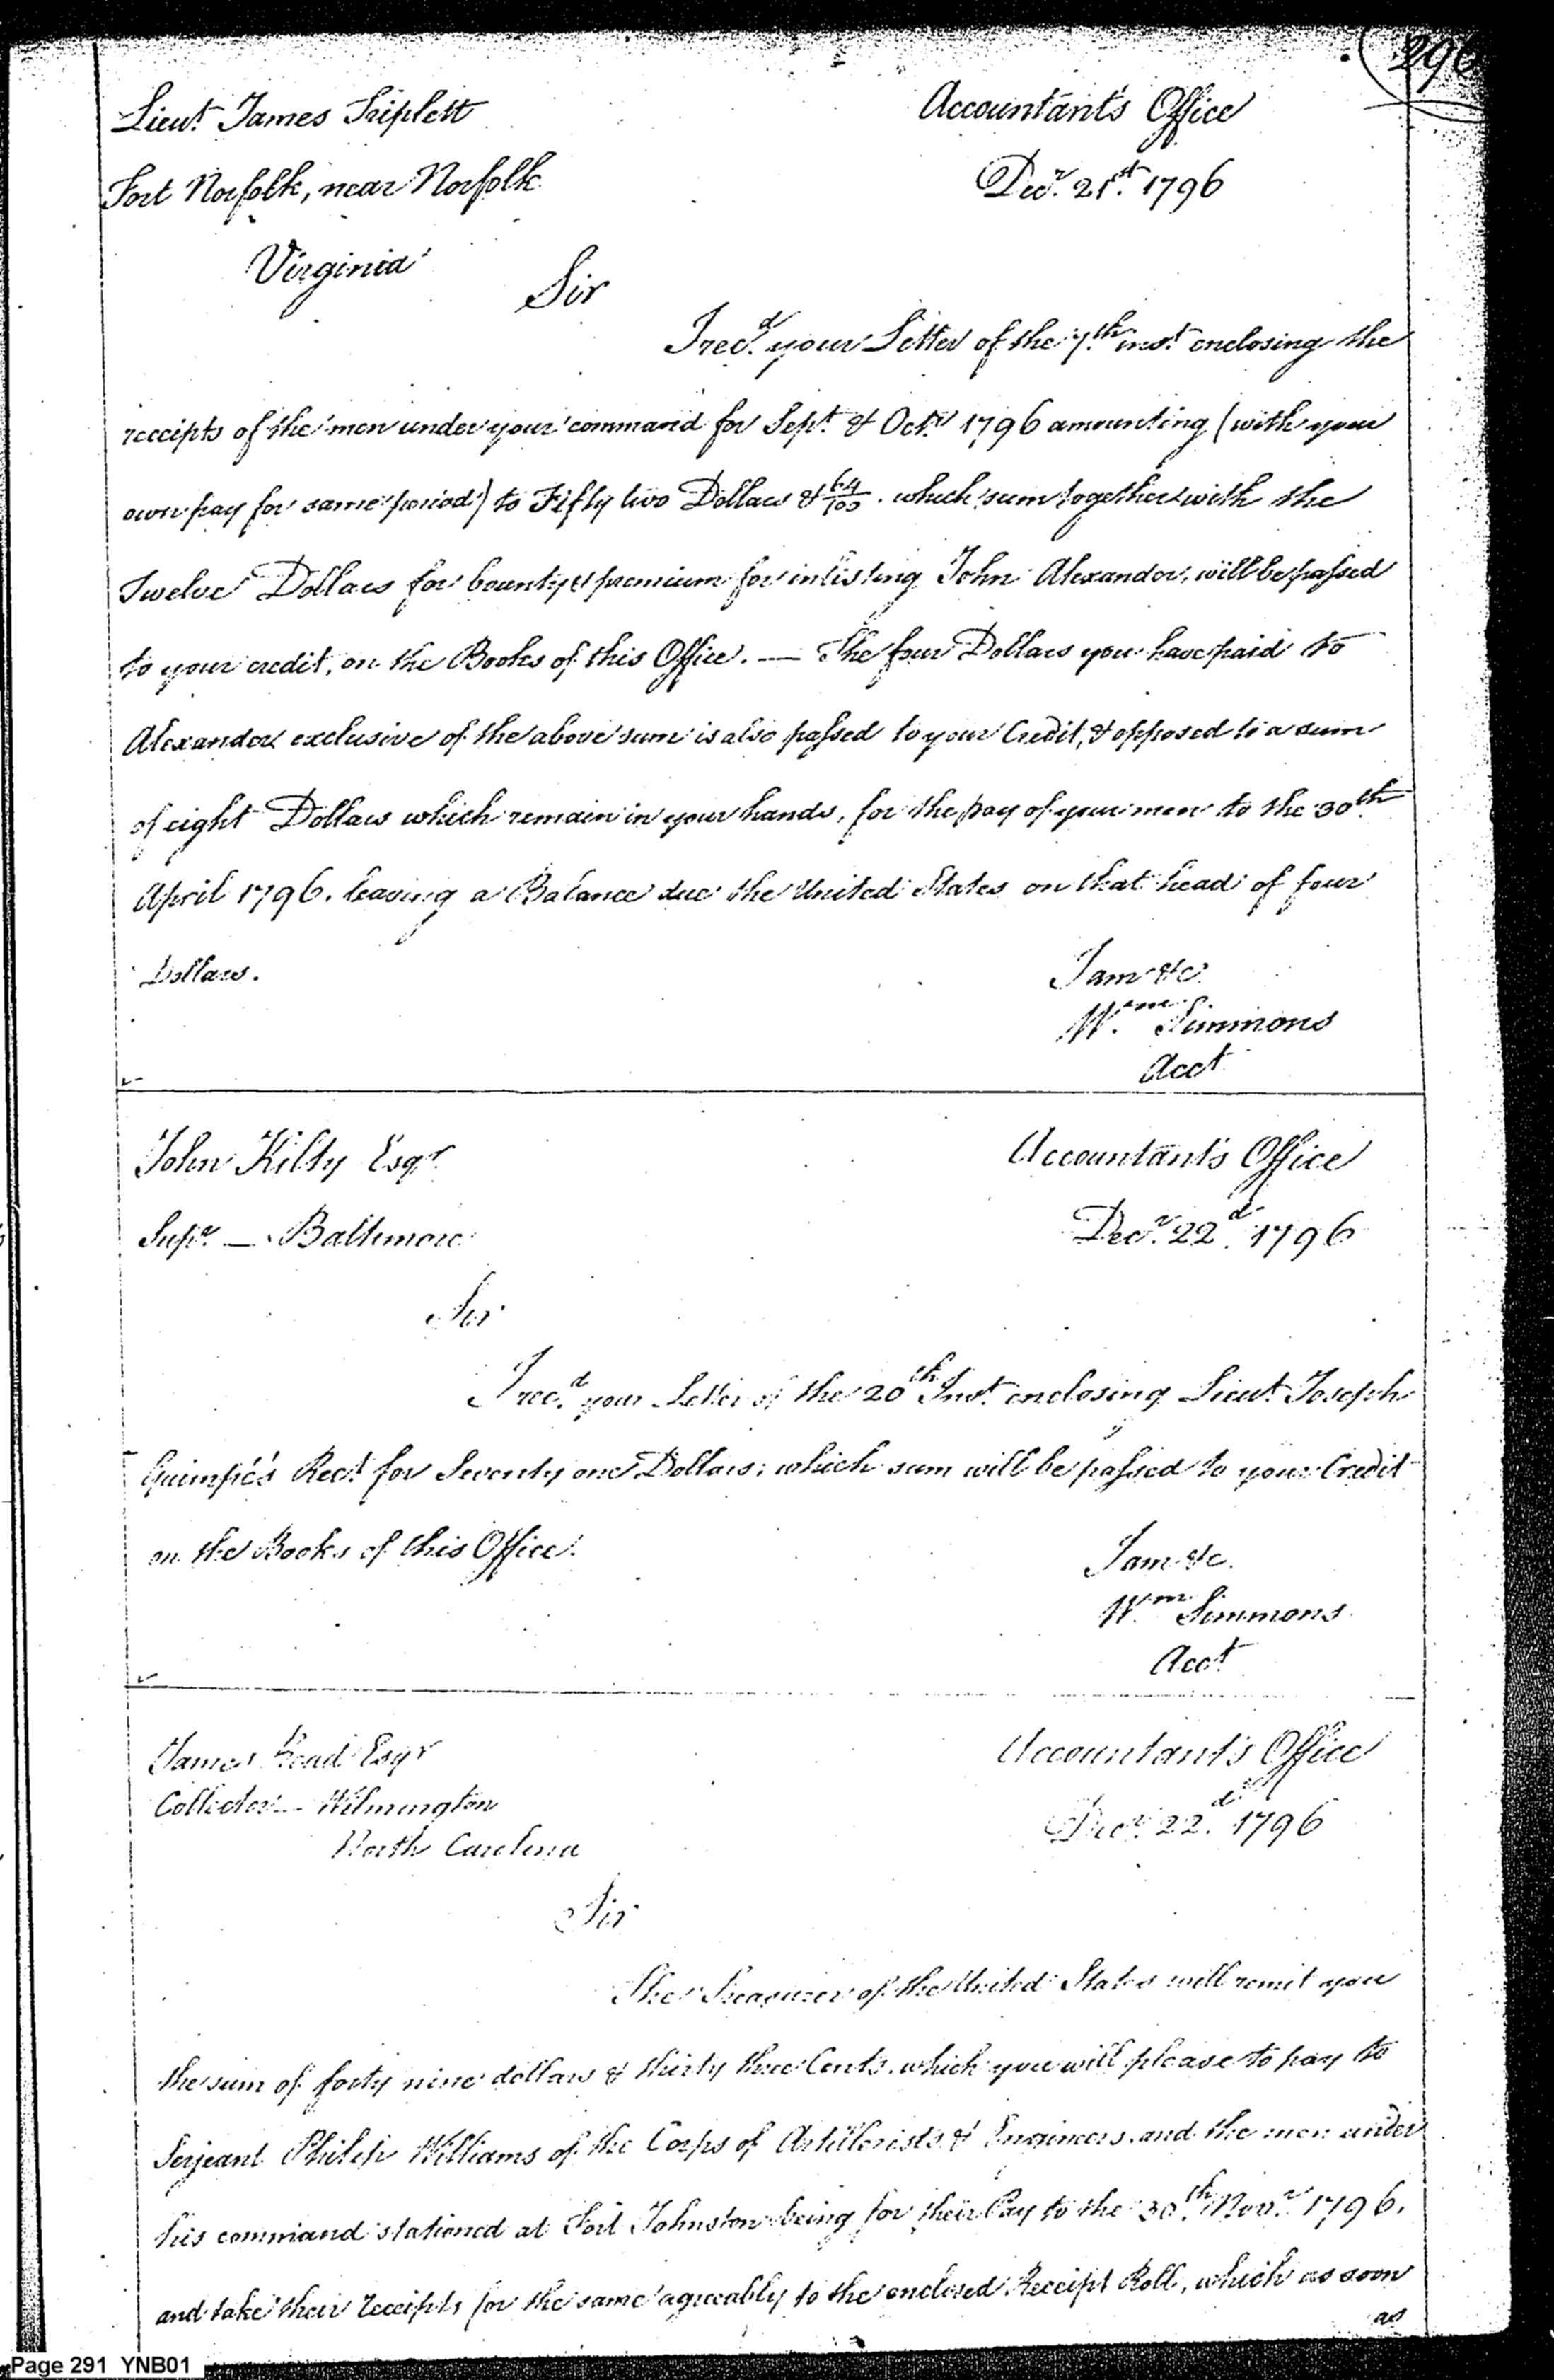 296
Lieut. James Triplett
Accountant's Office
Fort Norfolk, near Norfolk
Decr. 21st. 1796
Virginia
Sir
I recd. your Letter of the 7th inst. enclosing the
receipts of the men under your command for Sept. & Octr. 1796 amounting (with your
own pay for same period) to Fifty two Dollars & 64/100. which sum together with the
Twelve Dollars for bounty & premium for inlisting John Alexander, will be passed
to your credit, on the Books of this Office. — The four Dollars you have paid to
Alexander exclusive of the above sum is also passed to your Credit, & opposed to a sum
of eight Dollars which remain in your hands, for the pay of your men to the 30th
April 1796. leaving a Balance due the United States on that head of four
Dollars.
I am &c.
Wm. Simmons
Acct
John Kilty Esqr.
Accountant's Office
Supr. — Baltimore
Decr. 22d. 1796
Sir
I recd. your Letter of the 20th Inst. enclosing Lieut. Joseph
Guimpé's Rect. for Seventy one Dollars; which sum will be passed to your Credit
on the Books of this Office.
I am &c.
Wm. Simmons
Acct
James Read Esqr
Accountant's Office
Collector — Wilmington
Decr. 22d. 1796
North Carolina
Sir
The Treasurer of the United States will remit you
the sum of forty nine dollars & thirty three Cents. which you will please to pay to
Serjeant Philip Williams of the Corps of Artillerists & Engineers. and the men under
his command stationed at Fort Johnston being for their Pay to the 30th. Novr. 1796.
and take their receipts for the same agreeably to the enclosed Receipt Roll, which as soon
as
Page 291 YNB01